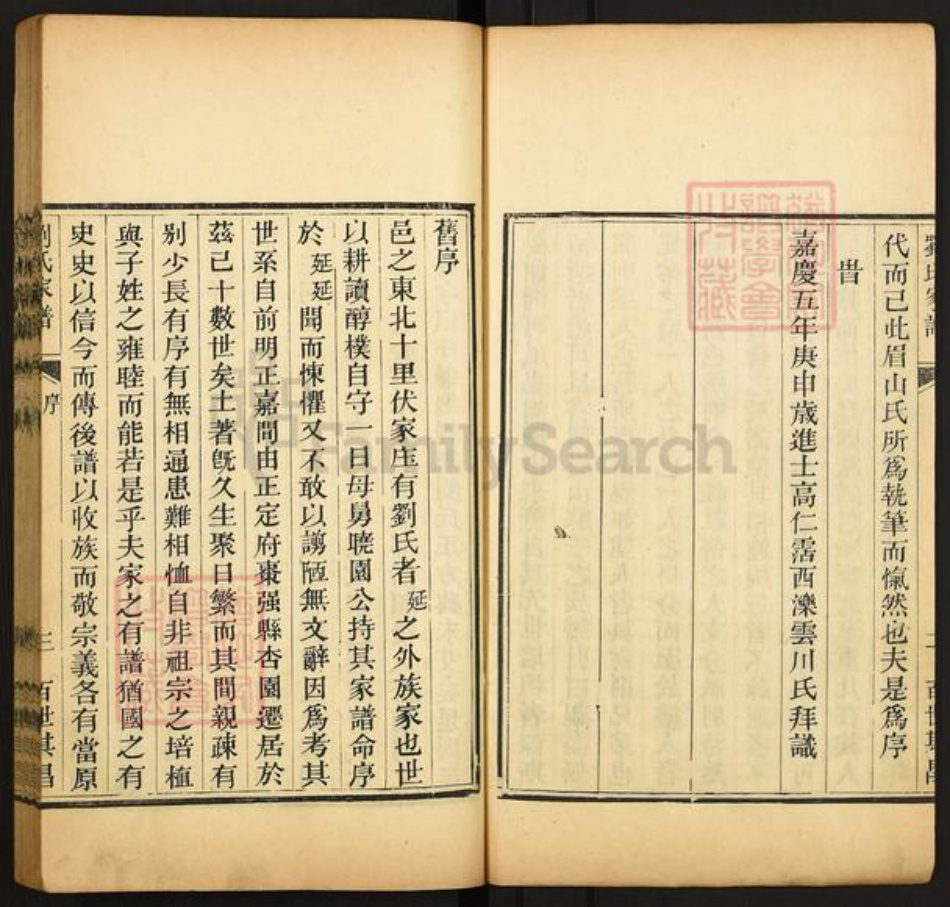 代而已此眉山氏所爲執筆而愾然也夫是爲序
旹
嘉慶五年庚申歲進士高仁霑西濼雲川氏拜識
舊序
邑之東北十里伏家庄有劉氏者延之外族家也世
以耕讀醇樸自守一日母舅曉園公持其家譜命序
於延延聞而悚懼又不敢以謭陋無文辭因爲考其
世系自前明正嘉間由正定府棗强縣杏園遷居於
茲已十數世矣土著旣久生聚日繁而其間親疎有
别少長有序有無相通患難相恤自非祖宗之培植
與子姓之雍睦而能若是乎夫家之有譜猶國之有
史史以信今而傳後譜以收族而敬宗義各有當原
劉氏家譜 序 三 百世其昌
FamilySearch